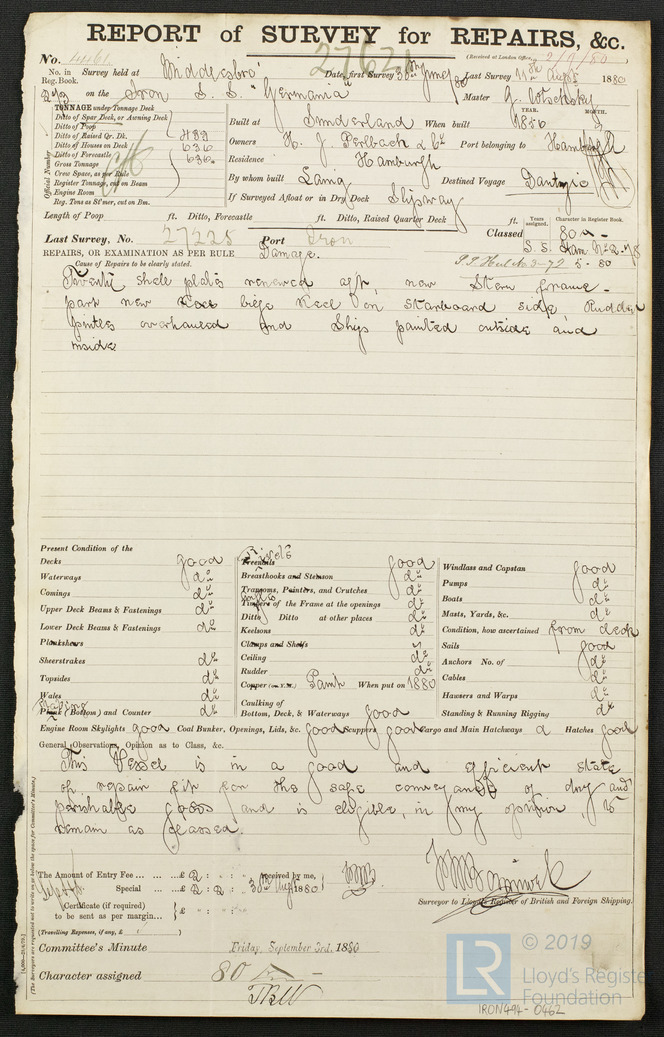 REPORT of SURVEY for REPAIRS, &c.
No. 4461 2762 (Received at London Office, 2/9/80
No. in Reg. Book. Survey held at Middlesbro' Date, first Survey Last Survey 1880
273 on the Iron S. S. "Germania" Master
TONNAGE under Tonnage Deck
Ditto of Spar Deck, or Awning Deck
Ditto of Poop
Ditto of Raised Qr. Dk. 492
Ditto of Houses on Deck 636
Ditto of Forecastle
Gross Tonnage 636
Crew Space, as per Rule
Register Tonnage, cut on Beam
Engine Room
Reg. Tons as St'mer, cut on Bm.
Official Number
Built at Sunderland When built 1856
YEAR. MONTH. 3
Owners H. J. Perlbach & Co Port belonging to Hamburgh
Residence Hamburgh
By whom built Laing Destined Voyage Dantzic
If Surveyed Afloat or in Dry Dock Slipway
Length of Poop ft. Ditto, Forecastle ft. Ditto, Raised Quarter Deck ft.
Years assigned. Character in Register Book.
Last Survey, No. 27225 Port Iron Classed 80
S. S. Ham No 2-78
5-80
REPAIRS, OR EXAMINATION AS PER RULE Damage.
Cause of Repairs to be clearly stated.
Twenty shell plates renewed aft, new Stern frame -
part new bilge keel on starboard side, Rudder
pintles overhauled and Ship painted outside and
inside
Present Condition of the
Decks good
Waterways do
Comings do
Upper Deck Beams & Fastenings do
Lower Deck Beams & Fastenings do
Plankshers
Sheerstrakes do
Topsides do
Wales
Plating
Plank (Bottom) and Counter do
Rivets
Treenails good
Breasthooks and Stemson do
Transoms, Pointers, and Crutches do
Timbers of the Frame at the openings do
Ditto Ditto at other places do
Keelsons do
Clamps and Shelfs
Ceiling do
Rudder do
Copper (or Y.M.) Paint When put on 1880
Caulking of
Bottom, Deck, & Waterways good
Windlass and Capstan good
Pumps do
Boats do
Masts, Yards, &c. do
Condition, how ascertained from deck
Sails good
Anchors No. of do
Cables do
Hawsers and Warps do
Standing & Running Rigging do
Engine Room Skylights good Coal Bunker, Openings, Lids, &c. good Scuppers good Cargo and Main Hatchways Hatches good
General Observations, Opinion as to Class, &c.
This Vessel is in a good and efficient state
of repair fit for the safe conveyance of dry and
perishable goods and is eligible, in my opinion, to
remain as classed.
The Amount of Entry Fee ... ... £ 2 : : received by me,
Special ... ... £ 2 : 2 : 30th Aug 1880
Certificate (if required) to be sent as per margin... £ : :
(Travelling Expenses, if any, £ )
Surveyor to Lloyd's Register of British and Foreign Shipping.
Committee's Minute Friday, September 3rd. 1880
Character assigned 80
(The Surveyors are requested not to write on or below the space for Committee's Minute.)
© 2019
LR Lloyd's Register
Foundation
IRON494-0462